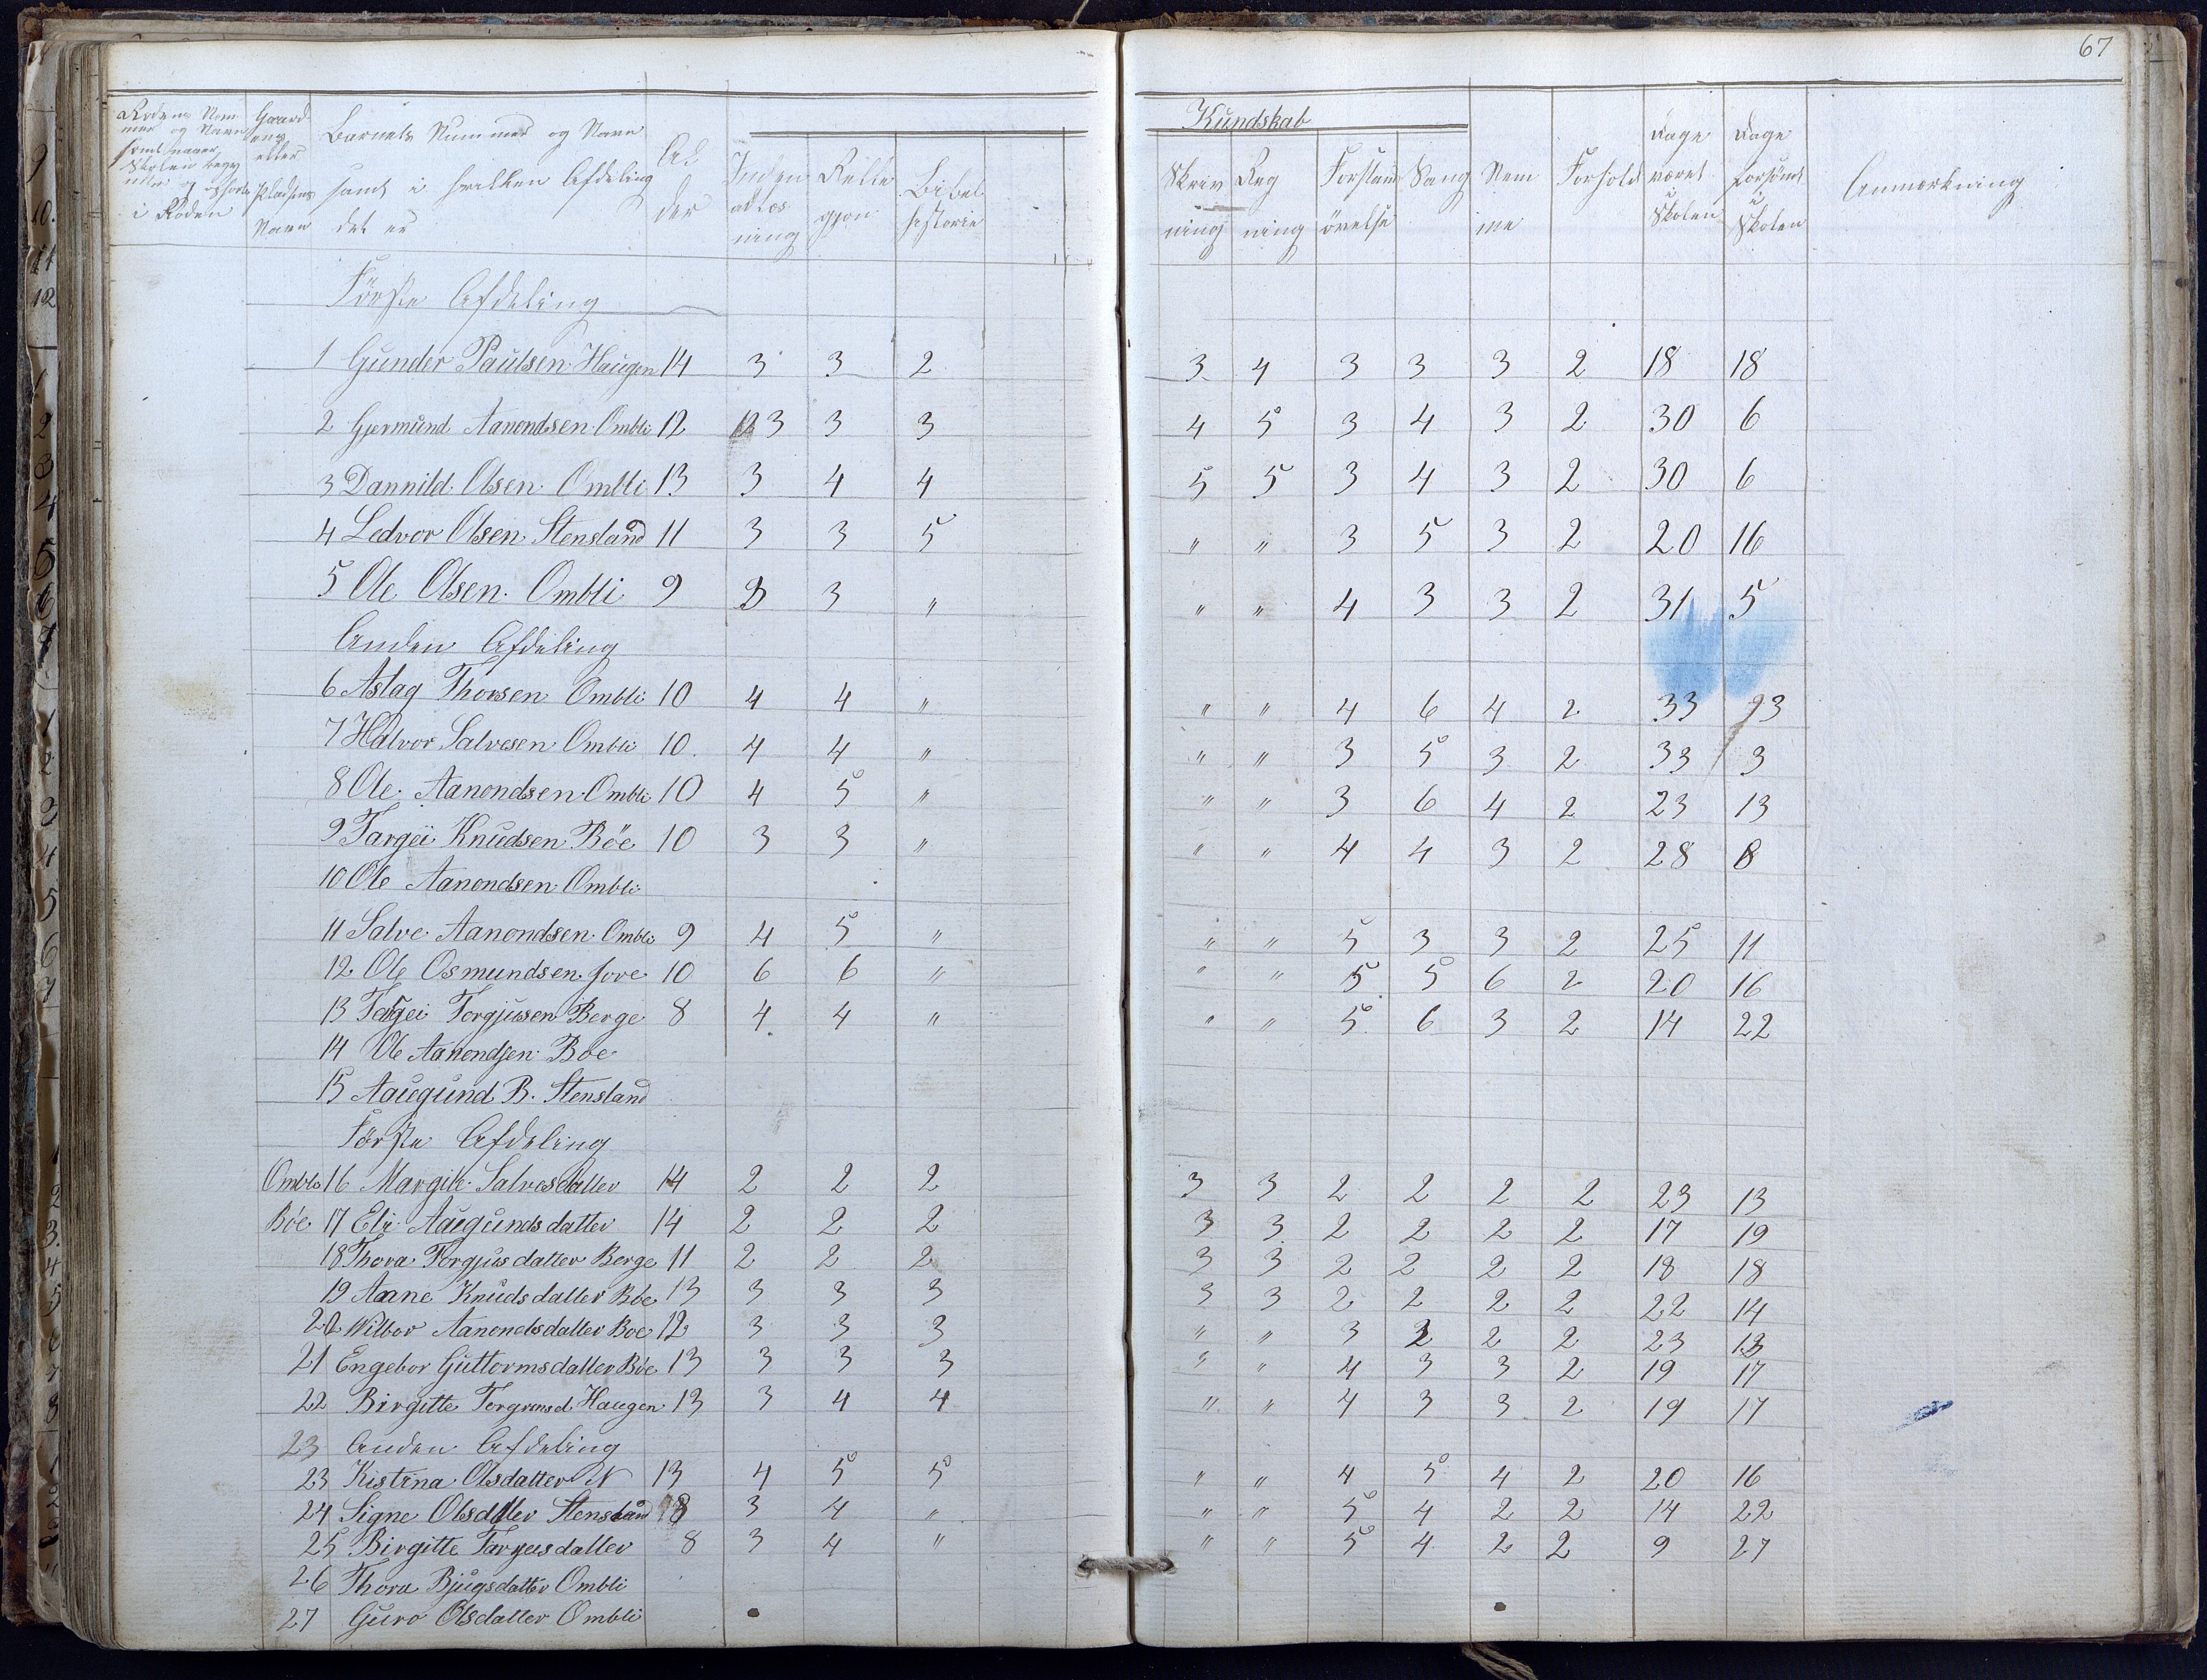 67
Rodens Nummer og Navn samt naar Skolen begyndte og ophörte i Roden | Gaardens eller Pladsens Navn | Barnets Nummer og Navn samt i hvilken Afdeling det er | Alder | Indenadlæsning | Religjon | Bibelhistorie | Kundskab | Skrivning | Regning | Forstandövelse | Sang | Nemme | Forhold | Dage været i Skolen | Dage forsömt i Skolen | Anmærkning
Förste Afdeling
1 Gunder Paulsen Haugen 14 3 3 2 3 4 3 3 3 2 18 18
2 Gjermund Aanondsen Ombli 12 3 3 3 4 5 3 4 3 2 30 6
3 Dannild Olsen Ombli 13 3 4 4 5 5 3 4 3 2 30 6
4 Ledvor Olsen Stensland 11 3 3 5 " " 3 5 3 2 20 16
5 Ole Olsen Ombli 9 3 3 " " " 4 3 3 2 31 5
Anden Afdeling
6 Aslag Thorsen Ombli 10 4 4 " " " 4 6 4 2 33 3
7 Halvor Salvesen Ombli 10 4 4 " " " 3 5 3 2 33 3
8 Ole Aanondsen Ombli 10 4 5 " " " 3 6 4 2 23 13
9 Targei Knudsen Böe 10 3 3 " " " 4 4 3 2 28 8
10 Ole Aanondsen Ombli
11 Salve Aanondsen Ombli 9 4 5 " " " 5 3 3 2 25 11
12 Ole Osmundsen Jore 10 6 6 " " " 5 5 6 2 20 16
13 Torgei Torgjusen Berge 8 4 4 " " " 5 6 3 2 14 22
14 Ole Aanondsen Boe
15 Aaugund B. Stensland
Förste Afdeling
Ombli 16 Margit Salvesdatter 14 2 2 2 3 3 2 2 2 2 23 13
Böe 17 Eli Aaugundsdatter 14 2 2 2 3 3 2 2 2 2 17 19
18 Thora Torgjusdatter Berge 11 2 2 2 3 3 2 2 2 2 18 18
19 Aane Knudsdatter Böe 13 3 3 3 3 3 2 2 2 2 22 14
20 Wilbor Aanondsdatter Boe 12 3 3 3 " " 3 2 2 2 23 13
21 Engebor Guttormsdatter Böe 13 3 3 3 " " 4 3 3 2 19 17
22 Birgitte Torgrimsd. Haugen 13 3 4 4 " " 4 3 3 2 19 17
23 Anden Afdeling
23 Kistina Olsdatter N 13 4 5 5 " " 4 5 4 2 20 16
24 Signe Olsdatter Stensland 8 3 4 " " " 5 4 2 2 14 22
25 Birgitte Targusdatter 8 3 4 " " " 5 4 2 2 9 27
26 Thora Bjugsdatter Ombli
27 Guro Olsdatter Ombli